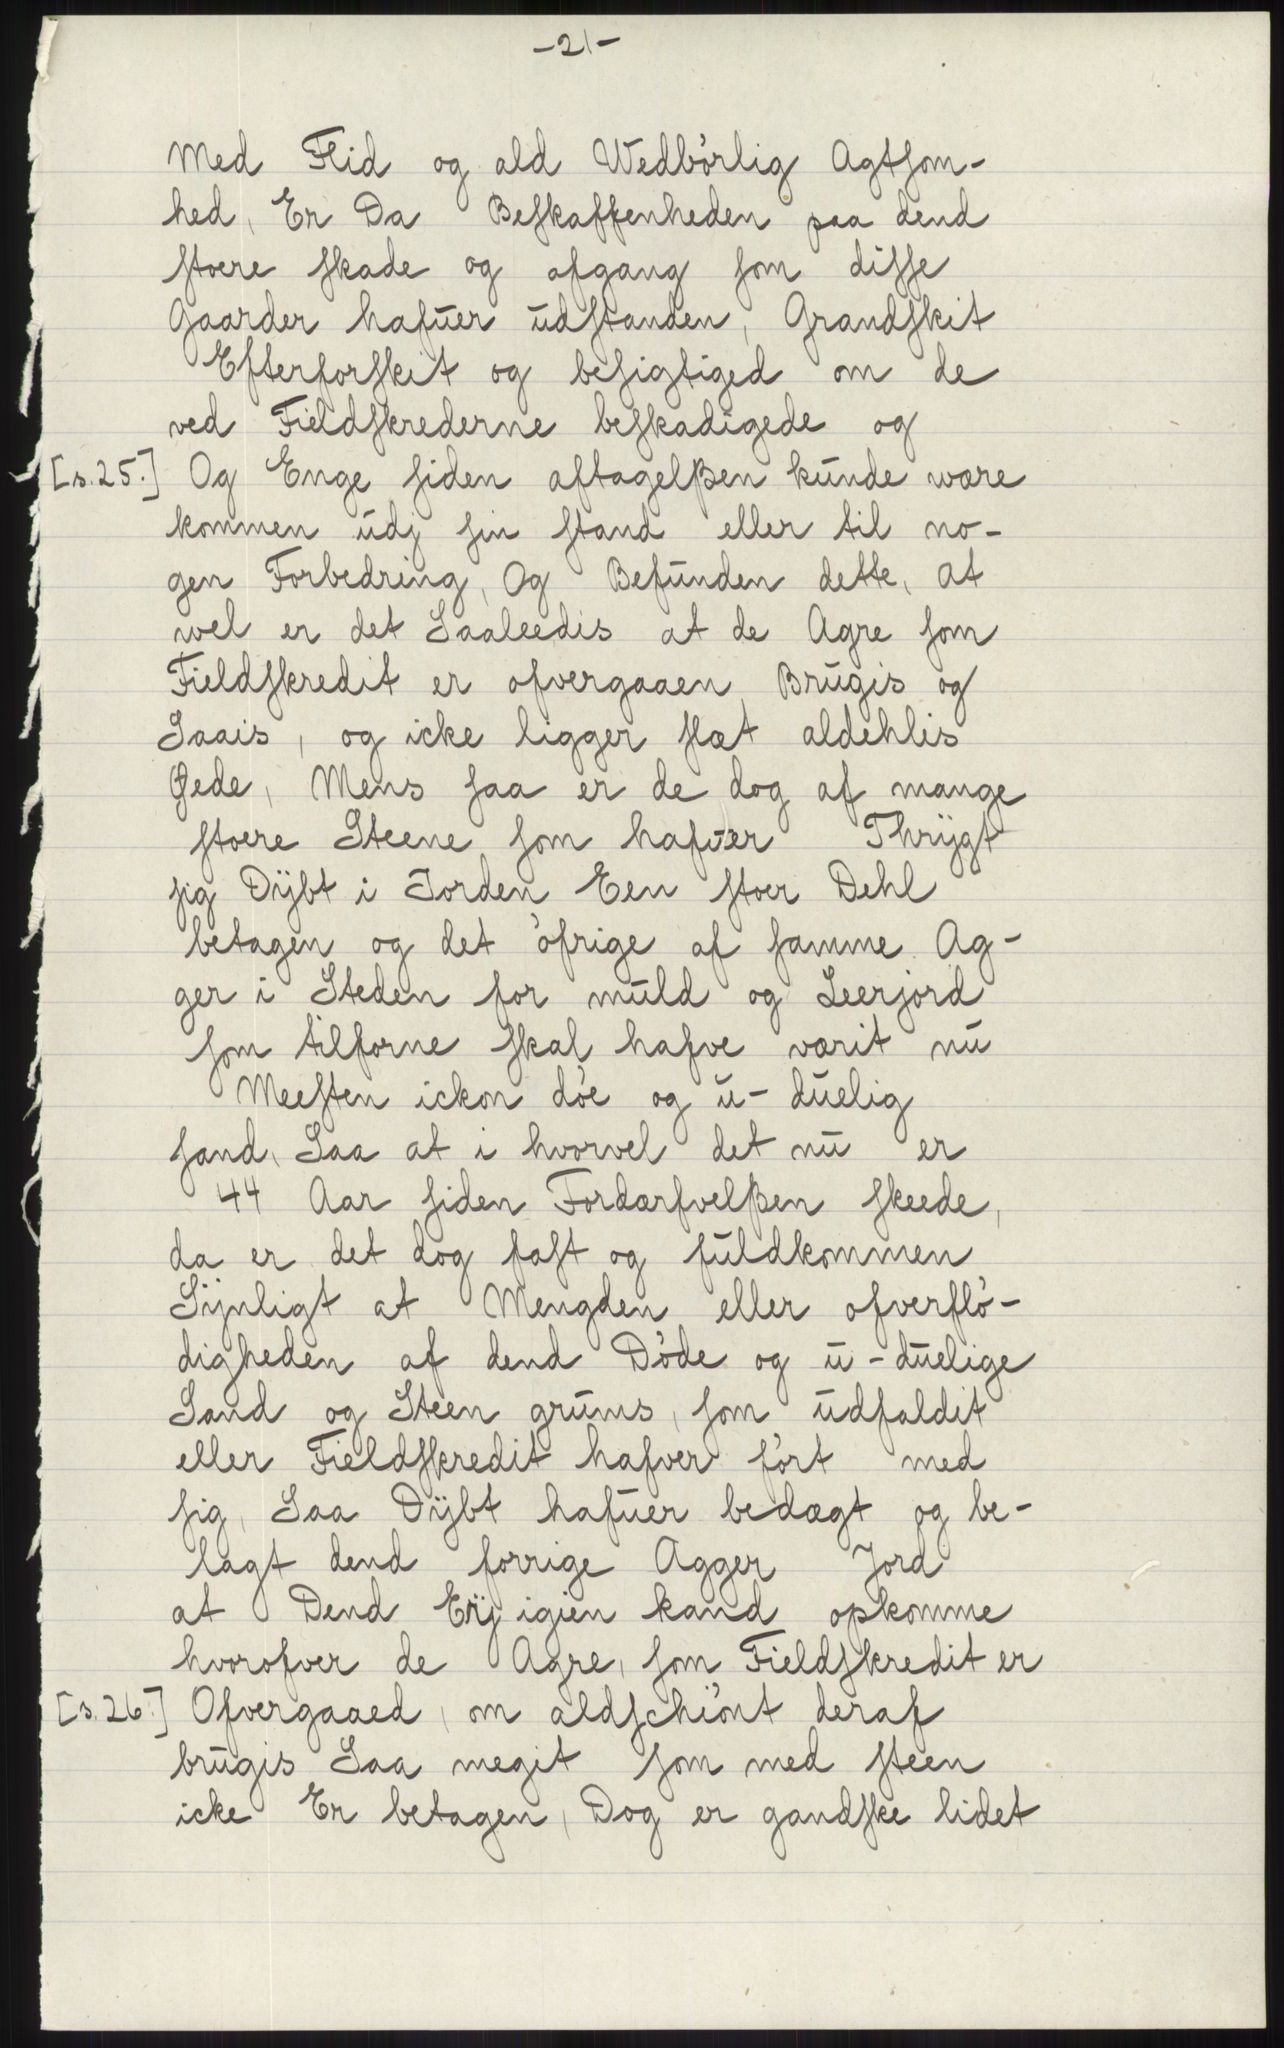 -21-
Med Flid og ald Wedbørlig Agtsom-
hed, Er Da Beskaffenheden paa dend
stoere skade og afgang som disse
Gaarder hafuer udstanden, Grandskit
Efterforskit og besigtiged om de
ved Fieldskrederne beskadigede og
[s.25.] Og Enge siden aftagelßen kunde wære
kommen udj sin stand eller til no-
gen Forbedring, Og Befunden dette, at
wel er det Saaleedis at de Agre som
Fieldskredit er ofvergaaen Brugis og
Saais, og icke ligger slæt aldehlis
Øede, Mens saa er de dog af mange
stoere Steene som hafver Thrÿgt
sig Dÿbt i Jorden Een stoer Dehl
betagen og det öfrige af samme Ag-
ger i Steden for muld og Leerjord
som tilforne skal hafve værit nu
Meesten ickon døe og u-duelig
sand, Saa at i hvorvel det nu er
44 Aar siden Fordærfvelßen skeede,
da er det dog fast og fuldkommen
Sÿnligt at Mengden eller ofverflø-
digheden af dend Døde og u-duelige
Sand og Steen grums, som udfaldit
eller Fieldskredit hafver ført med
sig, Saa Dÿbt hafuer bedægt og be-
lagt dend forrige Agger Jord
at Dend Eÿ igien kand opkomme
hvorofver de Agre, som Fieldskredit er
[s.26.] Ofvergaaed, om aldschiönt deraf
brugis Saa megit som med steen
icke Er betagen, Dog er gandske lidet